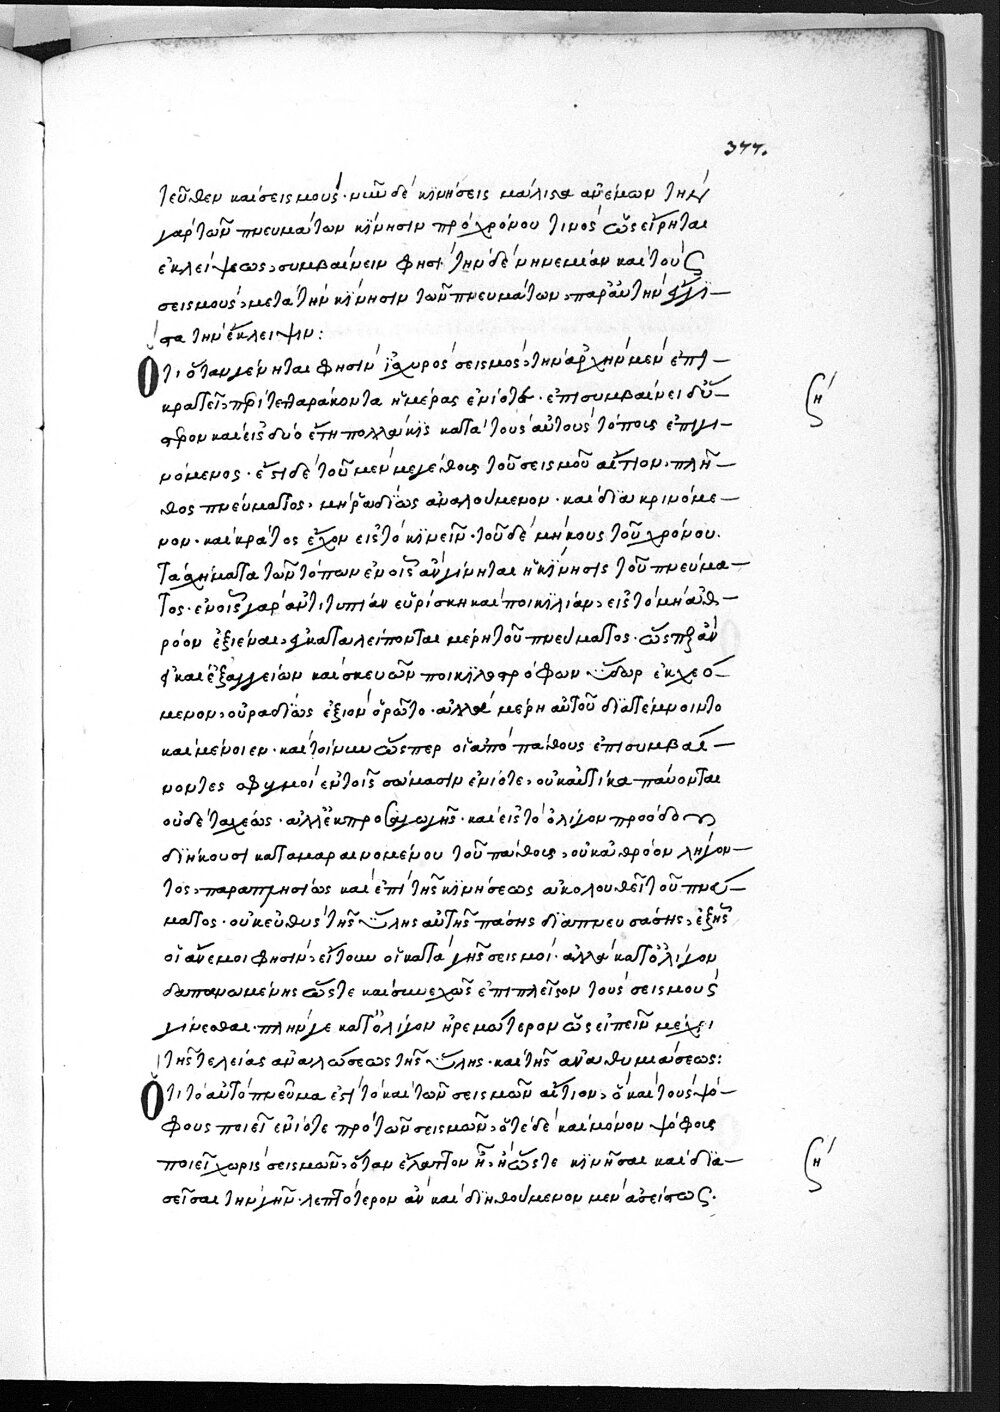 377.
τεῦθεν καὶ σεισμούς· νῦν δὲ κϊνήσεις μάλιστα ἀνέμων τὴν
γὰρ τῶν πνευμάτων κίνησιν πρὸ χρόνου τινὸς ὡς εἴρηται
ἐκλείψεως, συμβαίνειν φησὶ τὴν δὲ νηνεμίαν καὶ τοὺς
σεισμούς, μετὰ τὴν κίνησιν τῶν πνευμάτων, παρ' αὐτὴν
τὴν ἔκλειψιν:
Ὅτι ὅταν γένηται φησὶν ἰσχυρὸς σεισμός, τὴν ἀρχὴν μὲν ἐπι-
κρατεῖ, τεσσαράκοντα ἡμέρας ἐνίοτε· ἐπισυμβαίνει δὕ-
στερον καὶ εἰς δύο ἔτη πολλάκϊς κατὰ τοὺς αὐτοὺς τόπους ἐπιγι-
νόμενος· ἔστι δὲ τοῦ μὲν μεγέθους τοῦ σεισμοῦ αἴτιον, πλῆ-
θος πνεύματος, μὴ ῥαδίως ἀναλούμενον· καὶ διακρινόμε-
νον· καὶ κράτος ἔχον εἰς τὸ κϊνεῖν· τοῦ δὲ μήκους τοῦ χρόνου.
τὰ σχήματα τῶν τόπων ἐν οἷς ἂν γίνηται ἡ κίνησις τοῦ πνεύμα-
τος· ἐν οἷς γὰρ ἀντιτυπίαν εὑρίσκη καὶ ποικϊλίαν, εἰς τὸ μὴ ἀθ-
ρόον ἐξιέναι, ἐγκαταλείπονται μέρη τοῦ πνεύματος· ὥσπερ ἂν
εἰ καὶ ἐξ ἀγγείων καὶ σκευῶν ποικϊλοστρόφων ὕδωρ ἐκχεό-
μενον, οὐ ῥαδίως ἐξιὸν ὁρῶτο· ἀλλὰ μέρη αὐτοῦ διατέμνοιντο
καὶ μένοιεν· καὶ τοίνυν ὥσπερ οἱ ἀπὸ πάθους ἐπισυμβαί-
νοντες σφυγμοὶ ἐν τοῖς σώμασιν ἐνίοτε, οὐκ αὐτίκα παύονται
οὐδὲ ταχέως· ἀλλ' ἐκ προσαγωγῆς· καὶ εἰς τὸ ὀλίγον προόδου
διήκουσι καταμαραινομένου τοῦ πάθους, οὐκ ἀθρόον λήγον-
τος, παραπλησίως καὶ ἐπὶ τῆς κϊνήσεως ἀκολουθεῖ τοῦ πνεύ-
ματος· οὐκ εὐθὺς τῆς ὕλης αὐτῆς πάσης διαπνευσάσης, ἐξ ἧς
οἱ ἄνεμοι φησὶν, εἴτουν οἱ κατὰ γῆς σεισμοί· ἀλλὰ κατ' ὀλίγον
δαπανωμένης ὥστε καὶ συνεχῶς ἐπιπλεῖστον τοὺς σεισμοὺς
γίνεσθαι· πλήν γε κατ' ὀλίγον ἠρεμαίτερον ὡς εἰπεῖν μέχρι
τῆς τελείας ἀναλώσεως τῆς ὕλης· καὶ τῆς ἀναθυμιάσεως:
Ὅτι τὸ αὐτὸ πνεῦμα ἐστὶ τὸ καὶ τῶν σεισμῶν αἴτιον, ὃ καὶ τοὺς ψό-
φους ποιεῖ ἐνίοτε πρὸ τῶν σεισμῶν, ὁτὲ δὲ καὶ μόνον ψόφους
ποιεῖ χωρὶς σεισμῶν, ὅταν ἔλαττον ᾖ, ἢ ὥστε κϊνῆσαι καὶ δια-
σεῖσαι τὴν γῆν· λεπτότερον ἂν καὶ διηθούμενον μὲν ἀσείστως.
ζη'
ζη'